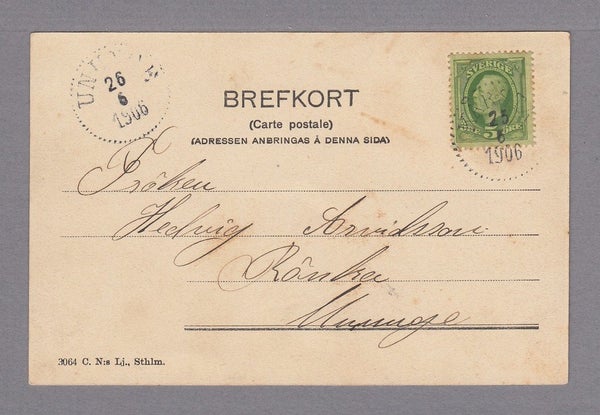 26
6
1906
SVERIGE
5
ÖRE ÖRE
25
6
1906
BREFKORT
(Carte postale)
(ADRESSEN ANBRINGAS Å DENNA SIDA)
Fröken
Hedvig Arvidsson
3064 C. N:s Lj., Sthlm.